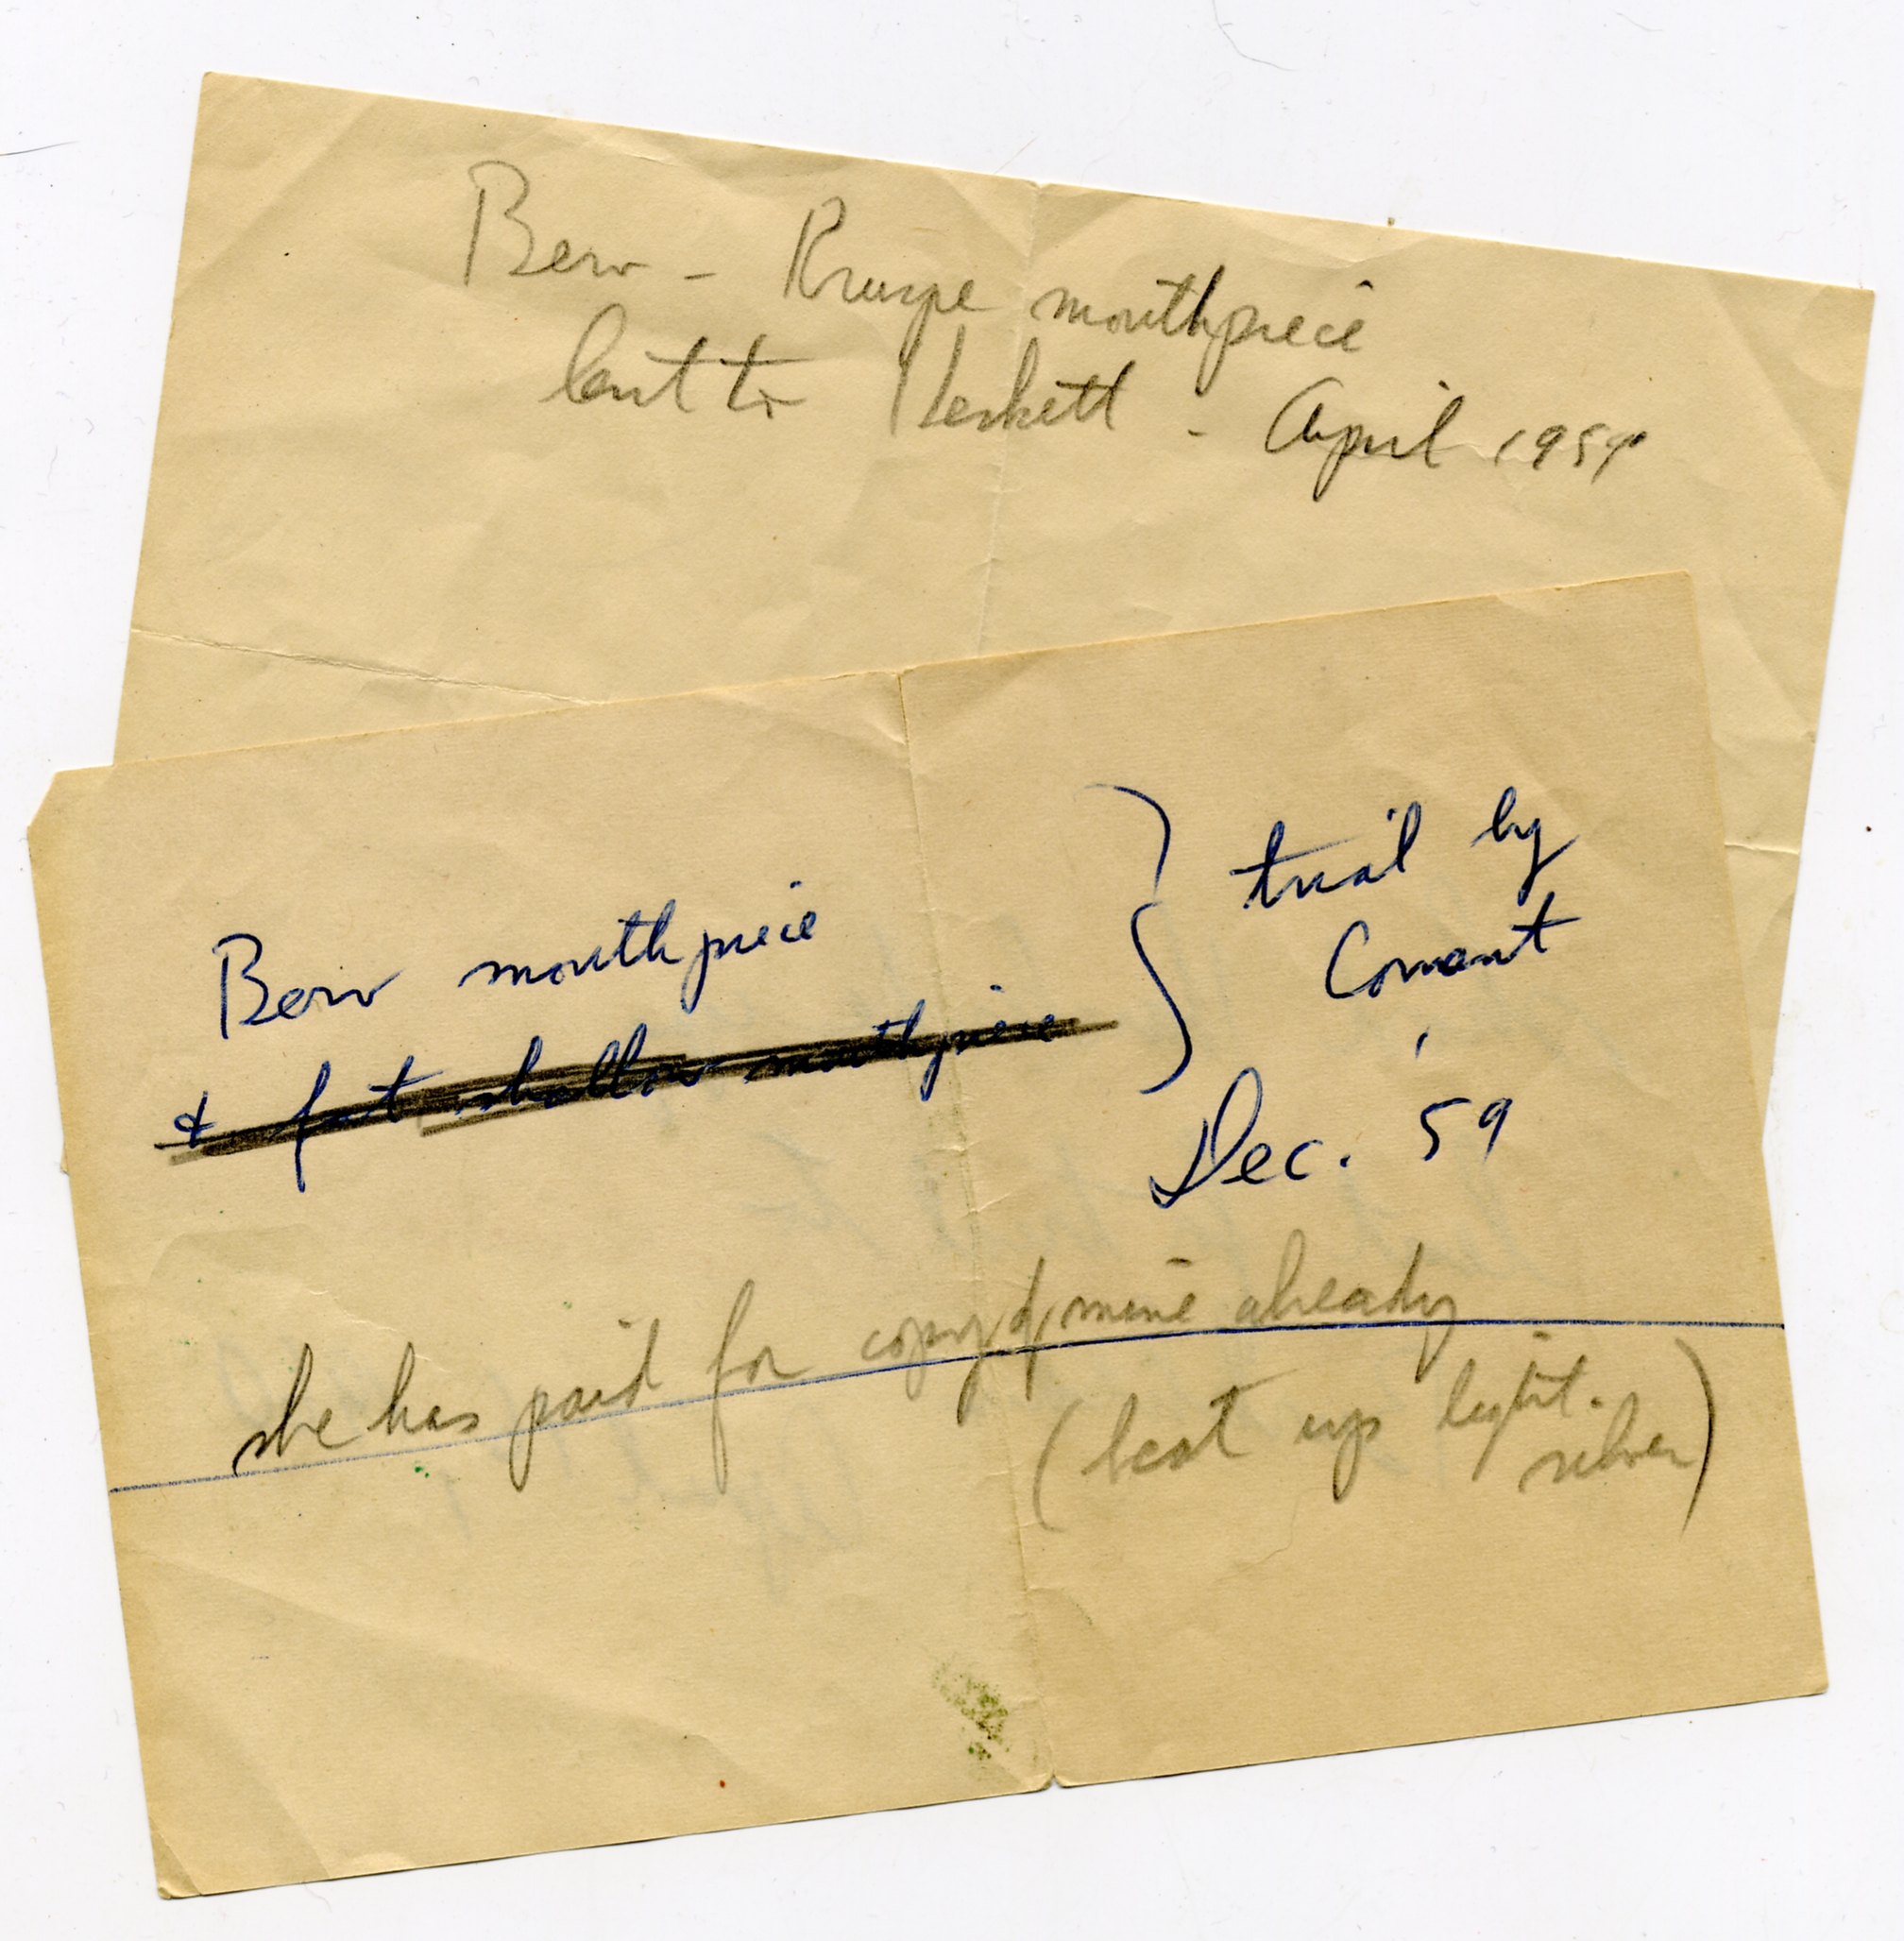 Berv - Kruspe mouthpiece
lent to Heskett - April 1959
Berv mouthpiece
& fat shallow mouthpiece
trial by
Conant
Dec. 59
she has paid for copy of mine already
(beat up light.
silver)